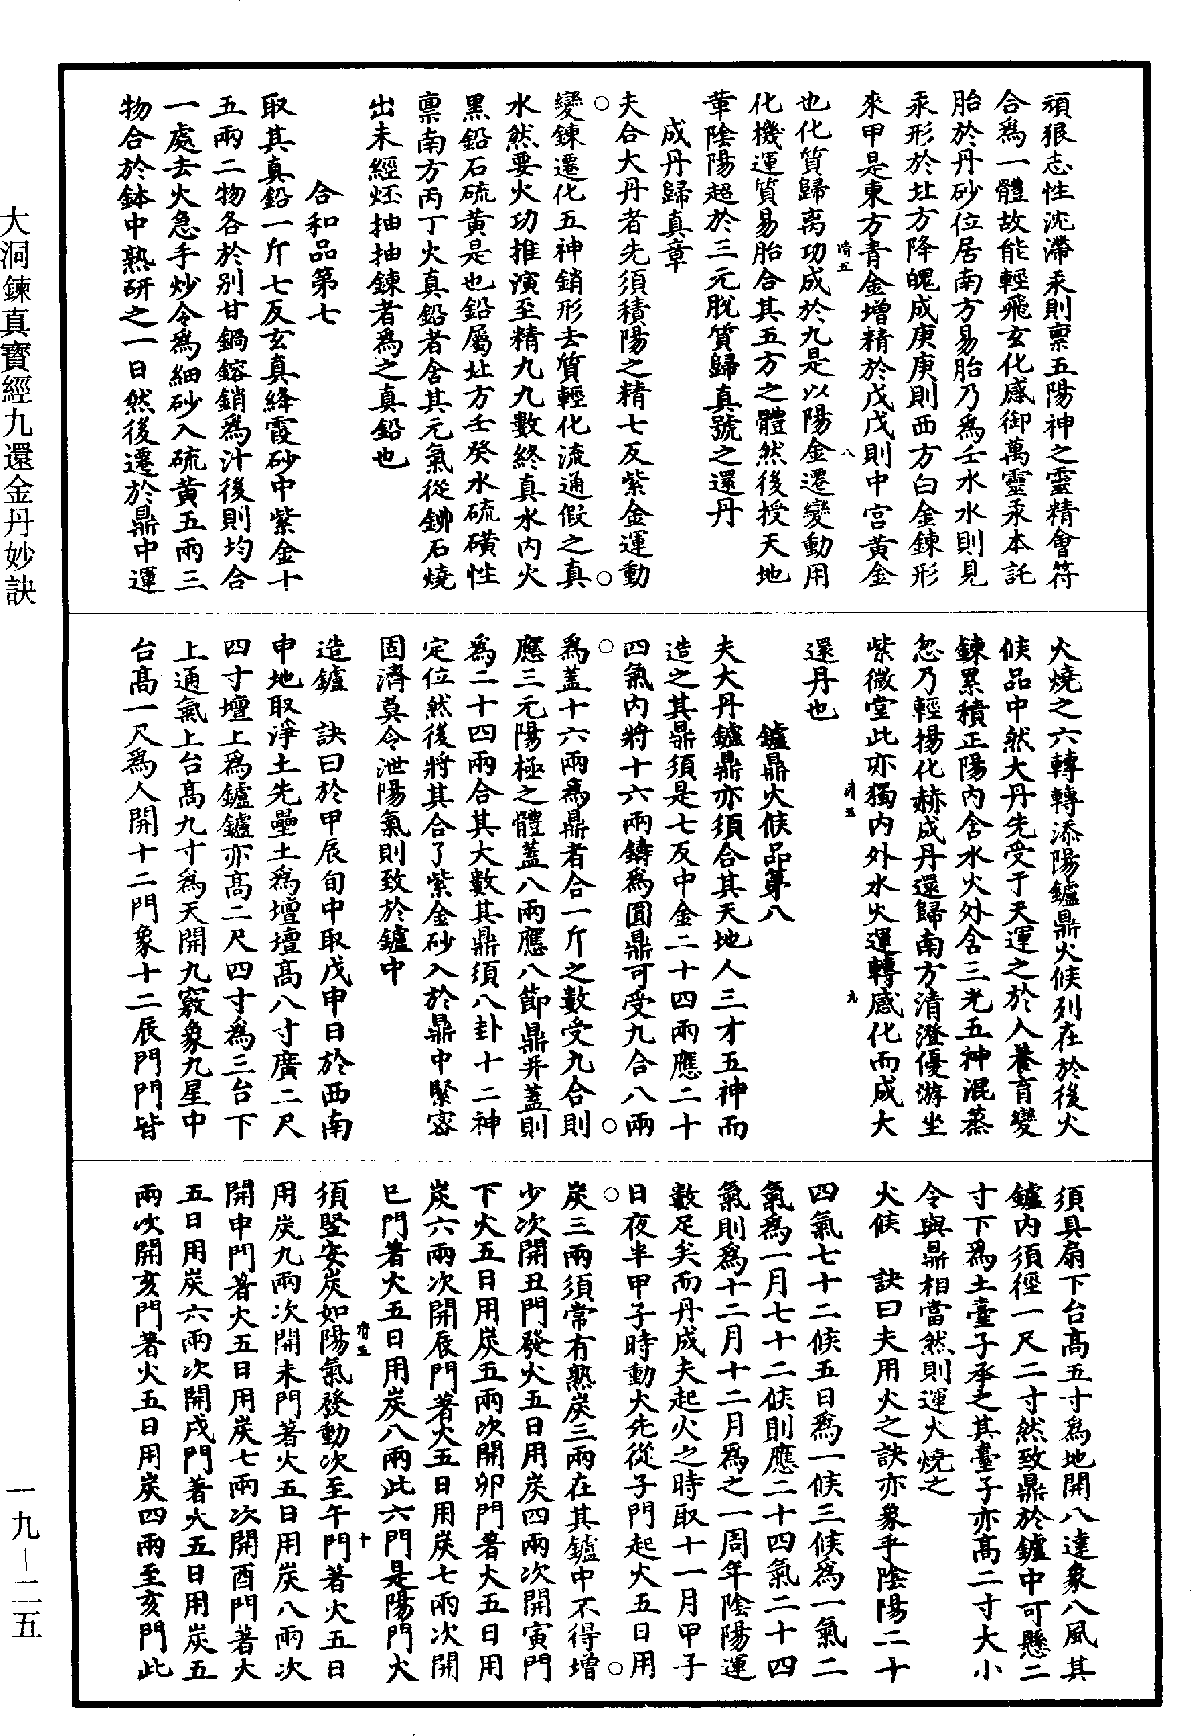 頑狠志性沈滯汞則禀五陽神之靈精會符
合爲一體故能輕飛玄化感御萬靈汞本託
胎於丹砂位居南方易胎乃爲壬水水則見
汞形於北方降魄成庚庚則西方白金鍊形
來甲是東方青金增精於戊戊則中宮黃金
也化質歸离功成於九是以陽金遷變動用
化機運質易胎合其五方之體然後授天地
華陰陽超於三元脫質歸真號之還丹
成丹歸真章
夫合大丹者先須積陽之精七反紫金運動
變鍊遷化五神銷形去質輕化流通假之真
水然要火功推演至精九九數終真水內火
黑鉛石硫黃是也鉛屬北方壬癸水硫磺性
禀南方丙丁火真鉛者含其元氣從鉚石燒
出未經坯抽抽鍊者爲之真鉛也
合和品第七
取其真鉛一斤七反玄真絳霞砂中紫金十
五兩二物各於別甘鍋鎔銷爲汁後則均合
一處去火急手炒令爲細砂入硫黃五兩三
物合於鉢中熟研之一日然後遷於鼎中運
火燒之六轉轉添陽鑪鼎火候列在於後火
候品中然大丹先受于天運之於人養育變
鍊累積正陽內含水火外含三光五神混蒸
忽乃輕揚化赫成丹還歸南方清澄優游坐
紫微堂此亦獨內外水火運轉感化而成大
還丹也
鑪鼎火候品第八
夫大丹鑪鼎亦須合其天地人三才五神而
造之其鼎須是七反中金二十四兩應二十
四氣內將十六兩鑄爲圓鼎可受九合八兩
爲蓋十六兩爲鼎者合一斤之數受九合則
應三元陽極之體蓋八兩應八節鼎并蓋則
爲二十四兩合其大數其鼎須八卦十二神
定位然後將其合了紫金砂入於鼎中緊密
固濟莫令泄陽氣則致於鑪中
造鑪　訣曰於甲辰旬中取戊申日於西南
申地取淨土先壘土爲壇壇高八寸廣二尺
四寸壇上爲鑪鑪亦高二尺四寸爲三台下
上通氣上台高九寸爲天開九竅象九星中
台高一尺爲人開十二門象十二辰門門皆
須具扇下台高五寸爲地開八達象八風其
鑪內須徑一尺二寸然致鼎於鑪中可懸二
寸下爲土臺子承之其臺子亦高二寸大小
令與鼎相當然則運火燒之
火候　訣曰夫用火之訣亦象乎陰陽二十
四氣七十二候五日爲一候三候爲一氣二
氣爲一月七十二候則應二十四氣二十四
氣則爲十二月十二月爲之一周年陰陽運
數足矣而丹成夫起火之時取十一月甲子
日夜半甲子時動火先從子門起火五日用
炭三兩須常有熟炭三兩在其鑪中不得增
少次開丑門發火五日用炭四兩次開寅門
下火五日用炭五兩次開卯門著火五日用
炭六兩次開辰門著火五日用炭七兩次開
巳門著火五日用炭八兩此六門是陽門火
須堅安炭如陽氣發動次至午門著火五日
用炭九兩次開未門著火五日用炭八兩次
開申門著火五日用炭七兩次開酉門著火
五日用炭六兩次開戌門著火五日用炭五
兩次開亥門著火五日用炭四兩至亥門此
大洞鍊真寶經九還金丹妙訣
一九－二五